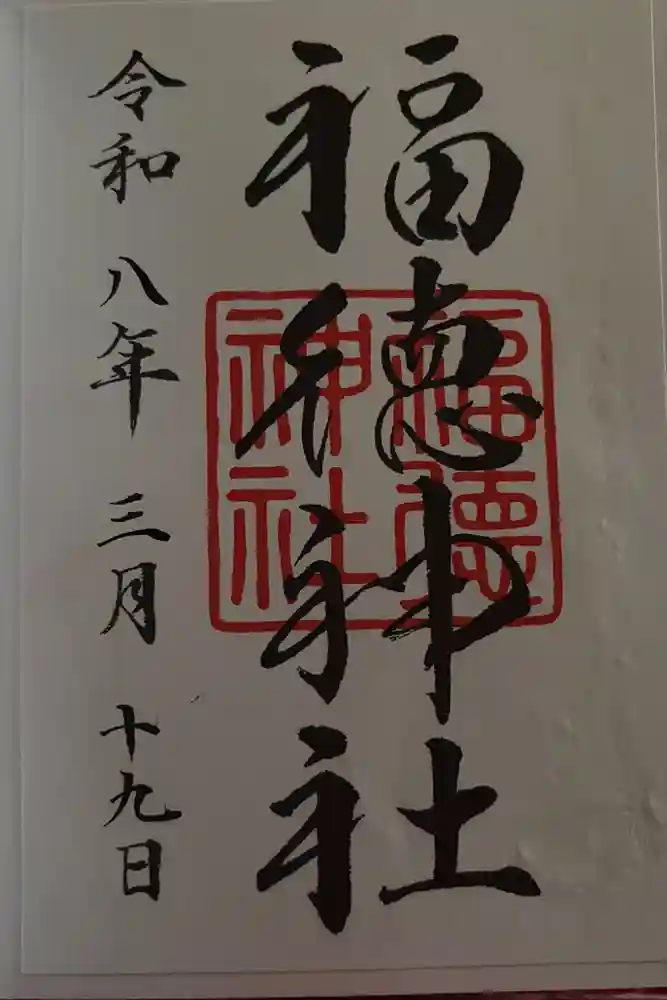 福徳神社
福徳
神社
令和八年三月十九日